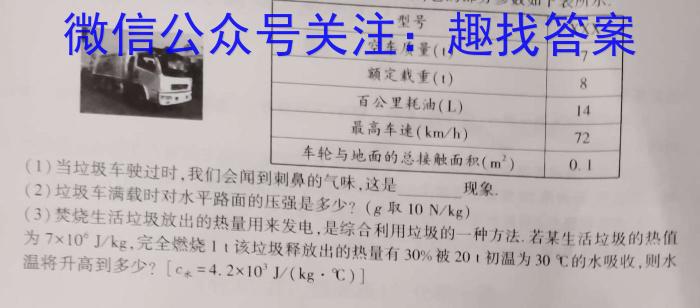 的部分参数如下表所示.
微信公众号关注：趣找答案
型号
空车质量(t) 7
额定载重(t) 8
百公里耗油(L) 14
最高车速(km/h) 72
车轮与地面的总接触面积(m²) 0.1
(1)当垃圾车驶过时,我们会闻到刺鼻的气味,这是______现象.
(2)垃圾车满载时对水平路面的压强是多少？(g取10 N/kg)
(3)焚烧生活垃圾放出的热量用来发电,是综合利用垃圾的一种方法.若某生活垃圾的热值
为7×10⁶ J/kg,完全燃烧1 t该垃圾释放出的热量有30%被20 t初温为30 ℃的水吸收,则水
温将升高到多少？[c水=4.2×10³ J/(kg·℃)]